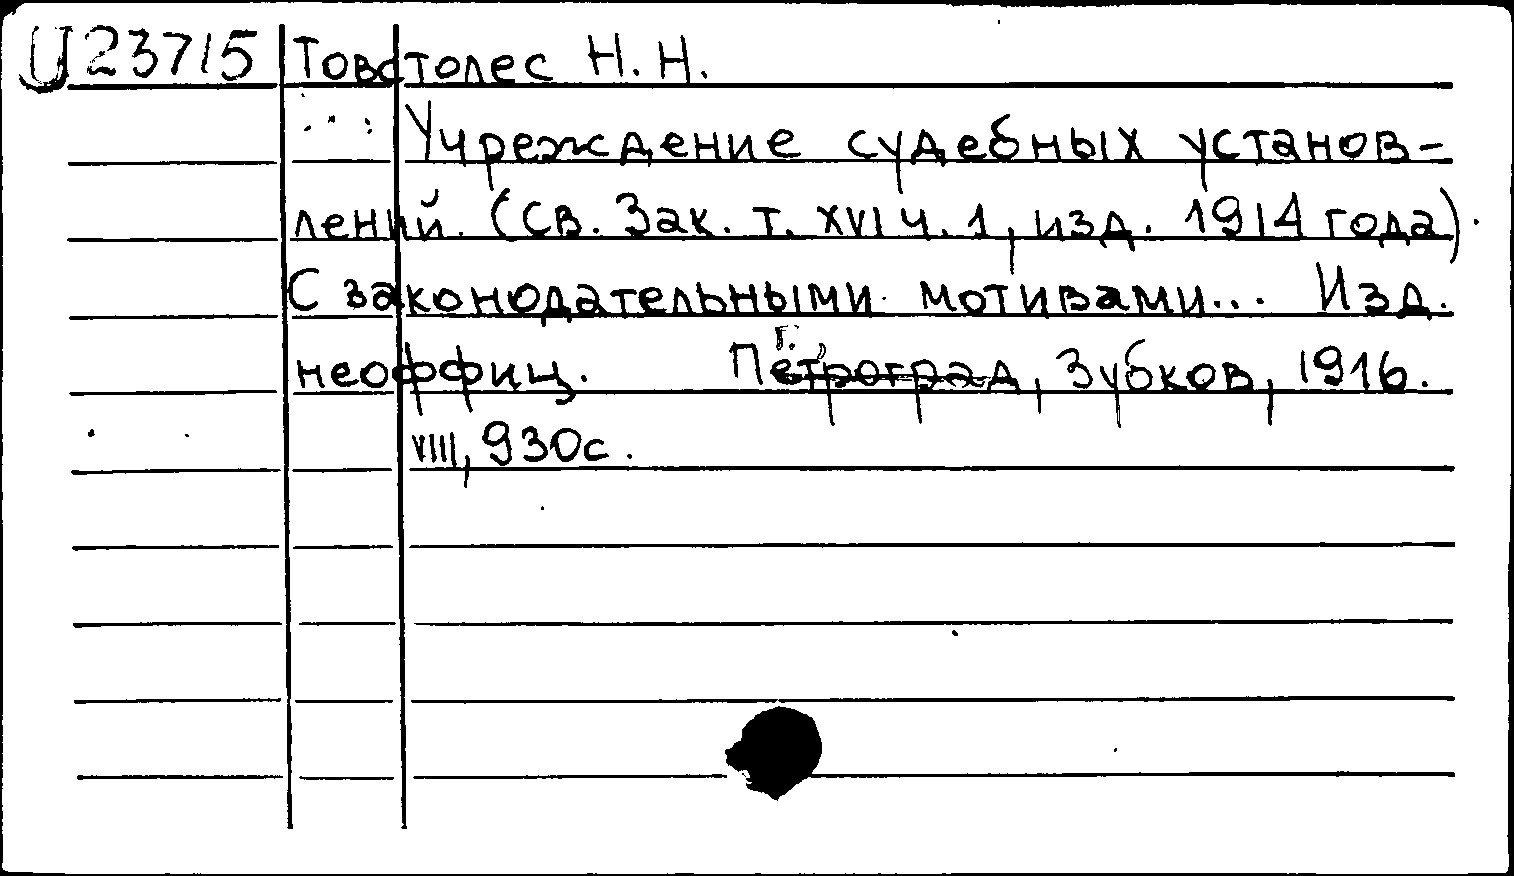 U 23715 Товстолес Н. Н.
Учреждение судебных установ-
лений. (Св. Зак. т. XVI ч. 1, изд. 1914 года).
С законодательными мотивами... Изд.
неоффиц. Петроград, Зубков, 1916.
VIII, 930с.